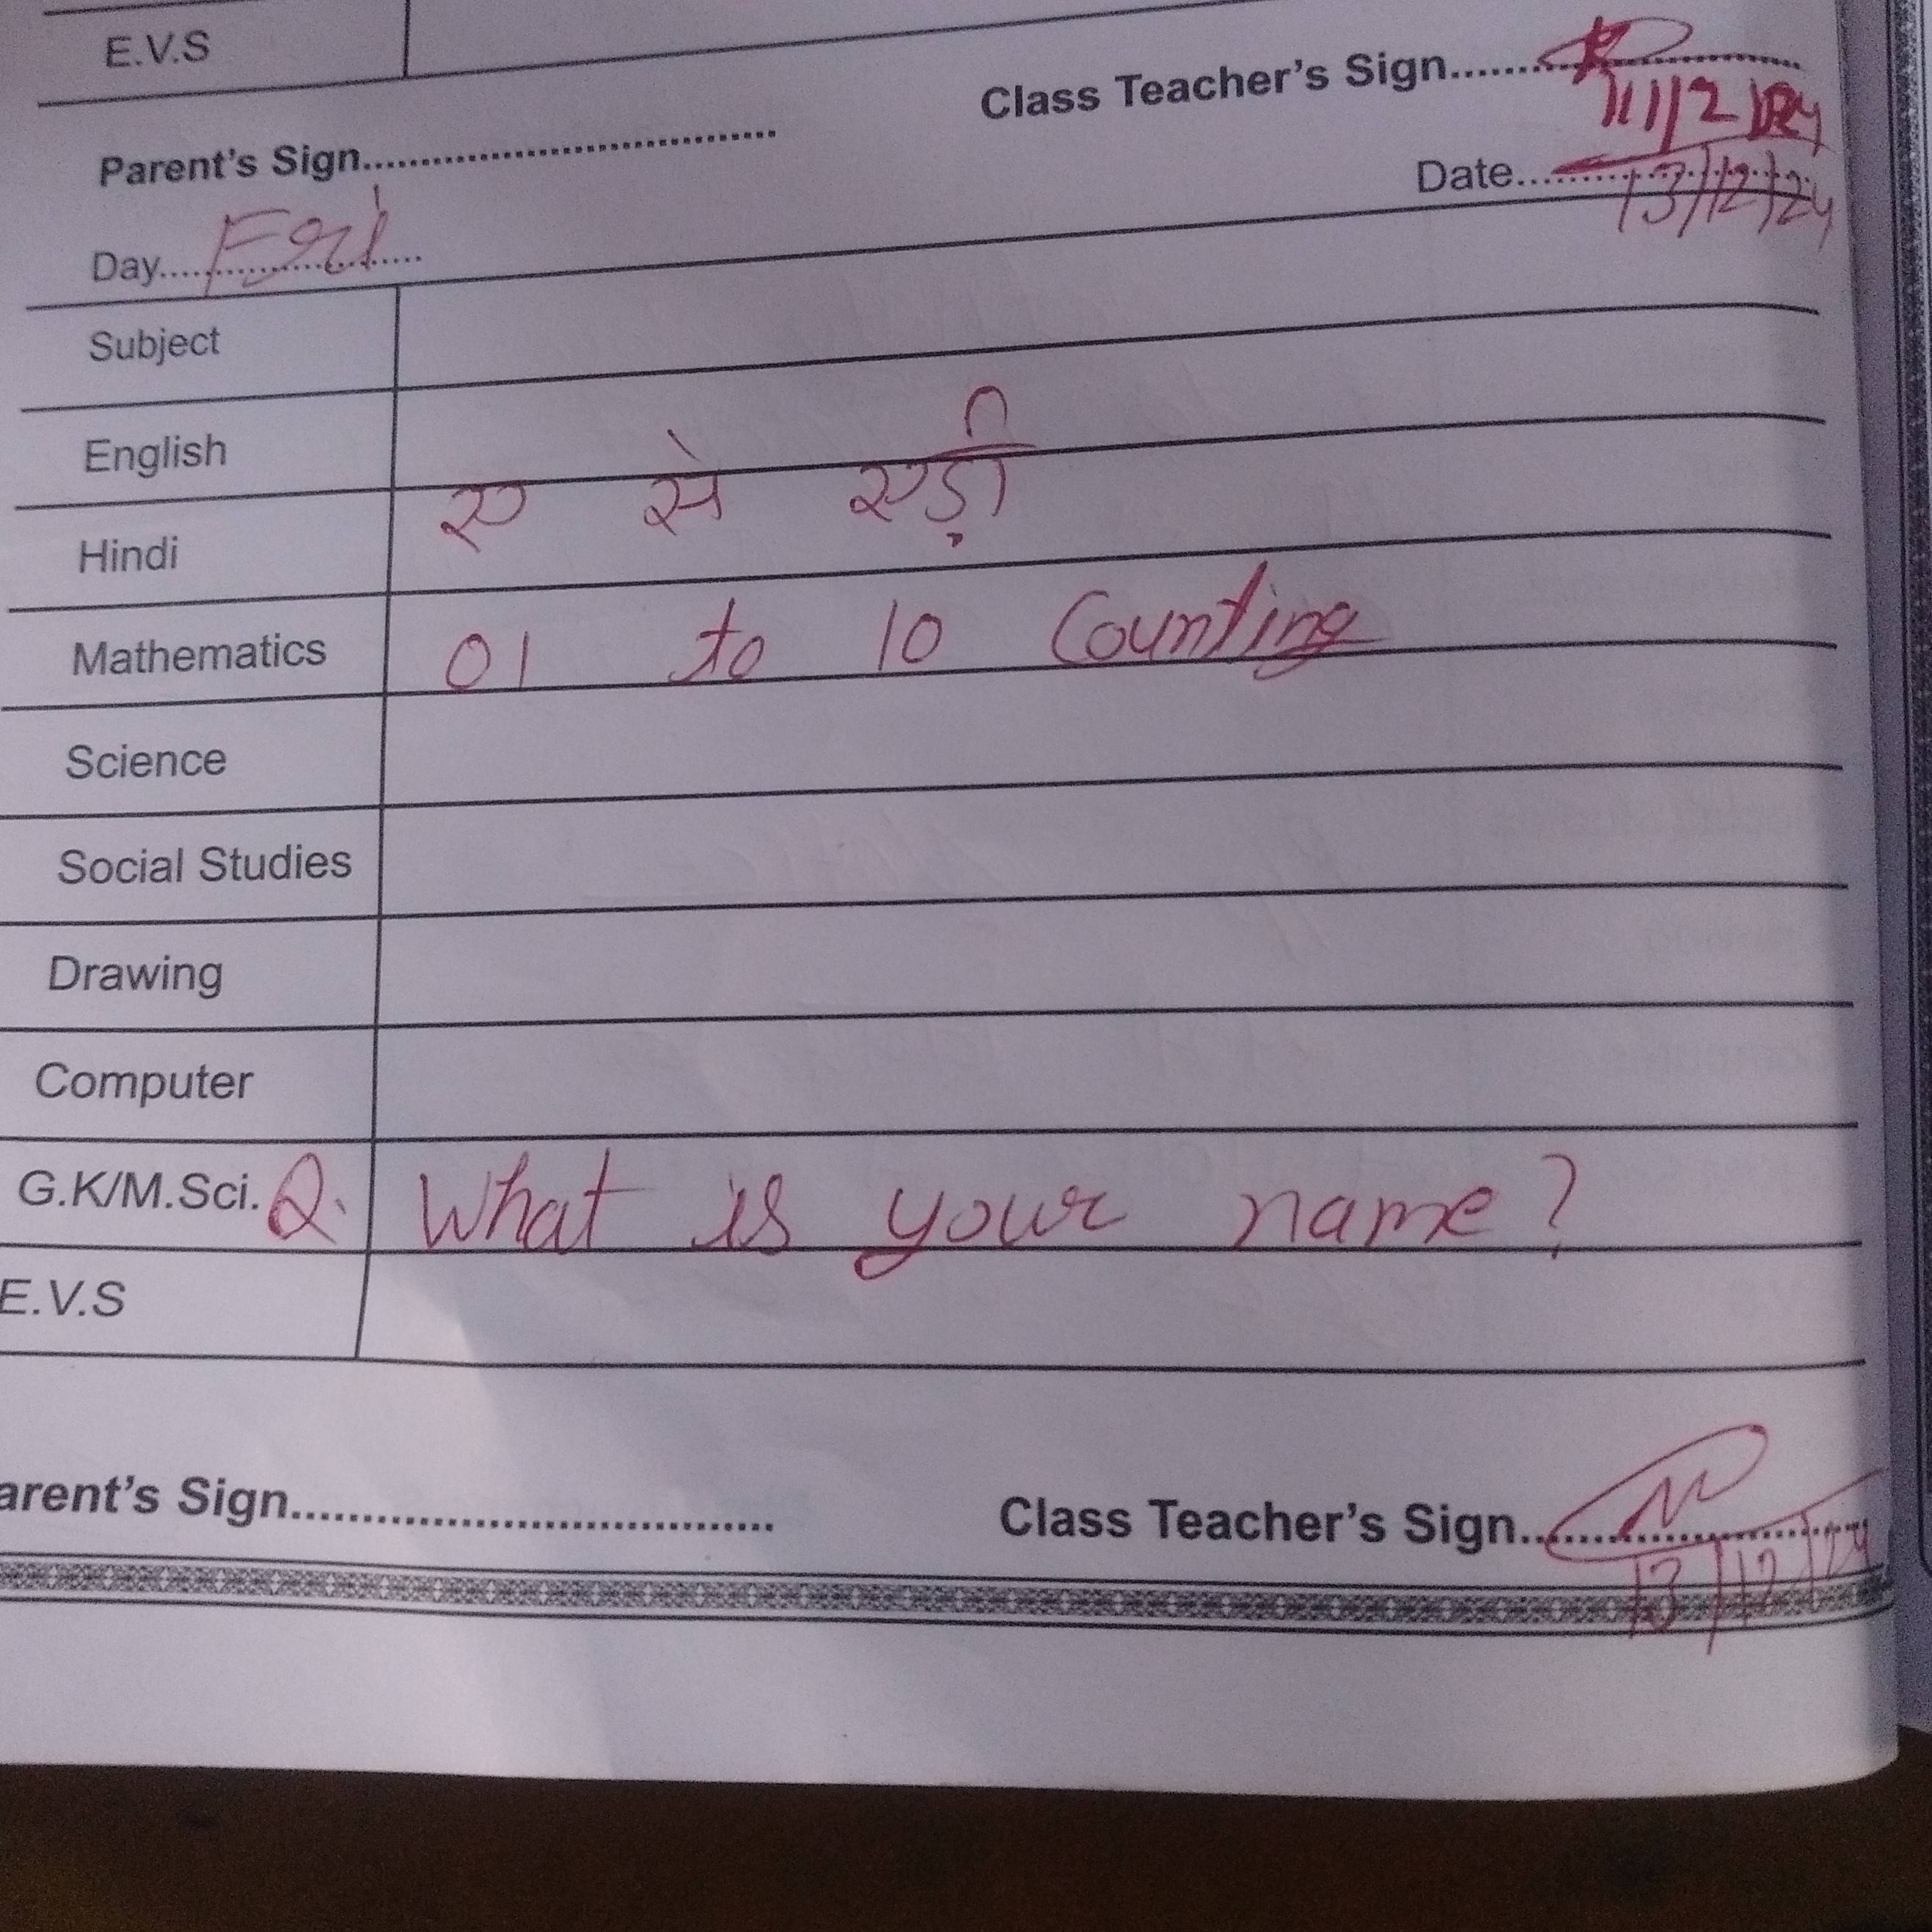 E.V.S
Class Teacher's Sign..........
11/12/24
Parent's Sign....................................
Date..........................
13/12/24
Day......Fri......
Subject
English
Hindi ए से एड़ी
Mathematics 01 to 10 Counting
Science
Social Studies
Drawing
Computer
G.K/M.Sci. Q. What is your name?
E.V.S
arent's Sign....................................
Class Teacher's Sign..........................
13/12/24